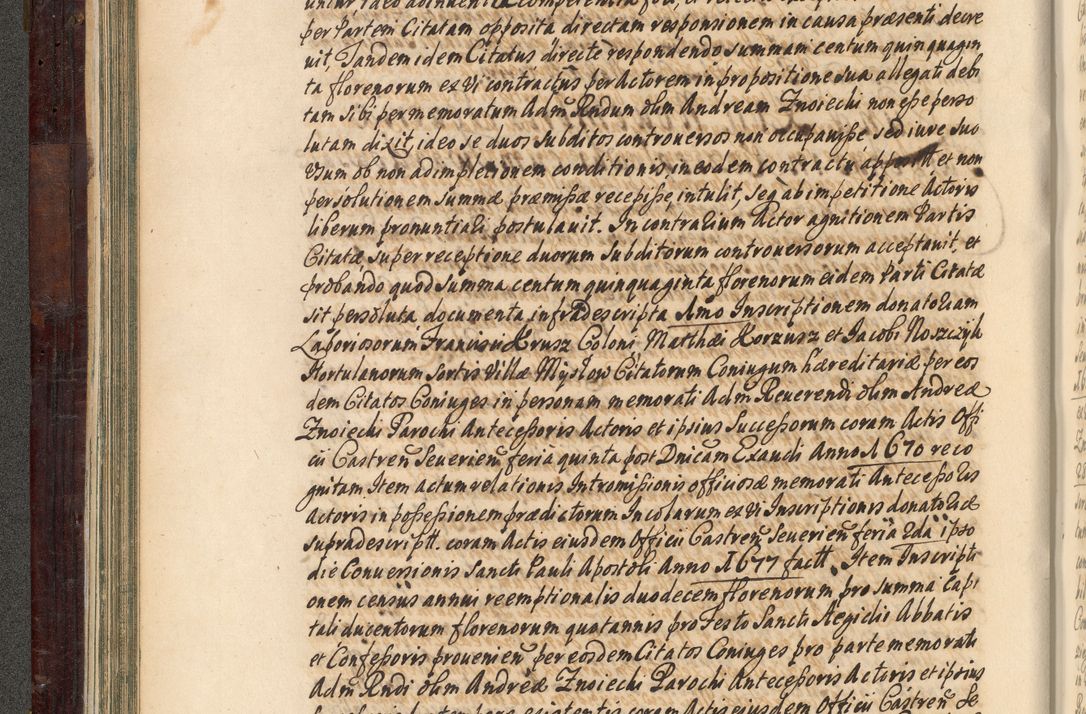 per Partem Citatam opposita directam responsionem in causa præsenti decre
vit, Tandem idem Citatus directe respondendo summam centum quinquagin
ta florenorum ex vi contractus per Actorem in propositione sua allegati debi
tam sibi per memoratum Adm Rndum olim Andream Znoiecki non esse perso
lutam dixit, ideo se duos subditos controversos non occupavisse sed iure suo
Usum ob non adimpletionem conditionis, in eodem contractu et non
persolutionem summæ præmissæ recepisse, intulit, seq ab impetitione Actoris
liberum pronuntiari postulavit. In contrarium Actor agnitionem Partis
Citatæ super receptione duorum subditorum controversorum acceptavit, et
probando quod summa centum quinquaginta florenorum eidem Parti Citatæ
sit persoluta documenta infradescripta Amo Inscriptionem donatoriam
Laboriosorum Francisci Krusz Coloni, Matthæi Korzusz et Jacobi Noszczyk
Hortulanorum Sortis Villæ Mysłow Citatorum Coniugum hæreditariæ per eos
dem Citatos Coniuges in personam memorati Adm Reverendi olim Andreæ
Znoiecki Parochi Antecessoris Actoris et ipsius Successorum coram Actis Offi
cii Castren Severien feria quinta post Dnicam Exaudi Anno 1670 reco
gnitam Item actum relationis Intromissionis officiosæ memorati Antecessoris
Actoris in possessionem prædictorum Incolarum ex vi Inscriptionis donatoriæ
supradescriptt. coram Actis eiusdem Officii Castren Severien feria 2da ipso
die Conversionis Sancti Pauli Apostoli Anno 1677 factt. Item Inscripti
onem census annui reemptionalis duodecem florenorum pro summa Capi
tali ducentorum florenorum quotannis pro Festo Sancti Aegidii Abbatis
et Confessoris provenien per eosdem Citatos Coniuges pro parte memorati
Adm Rndi olim Andreæ Znoiecki Parochi Antecessoris Actoris et ipsius
coram Actis eiusdem Officii Castren Se